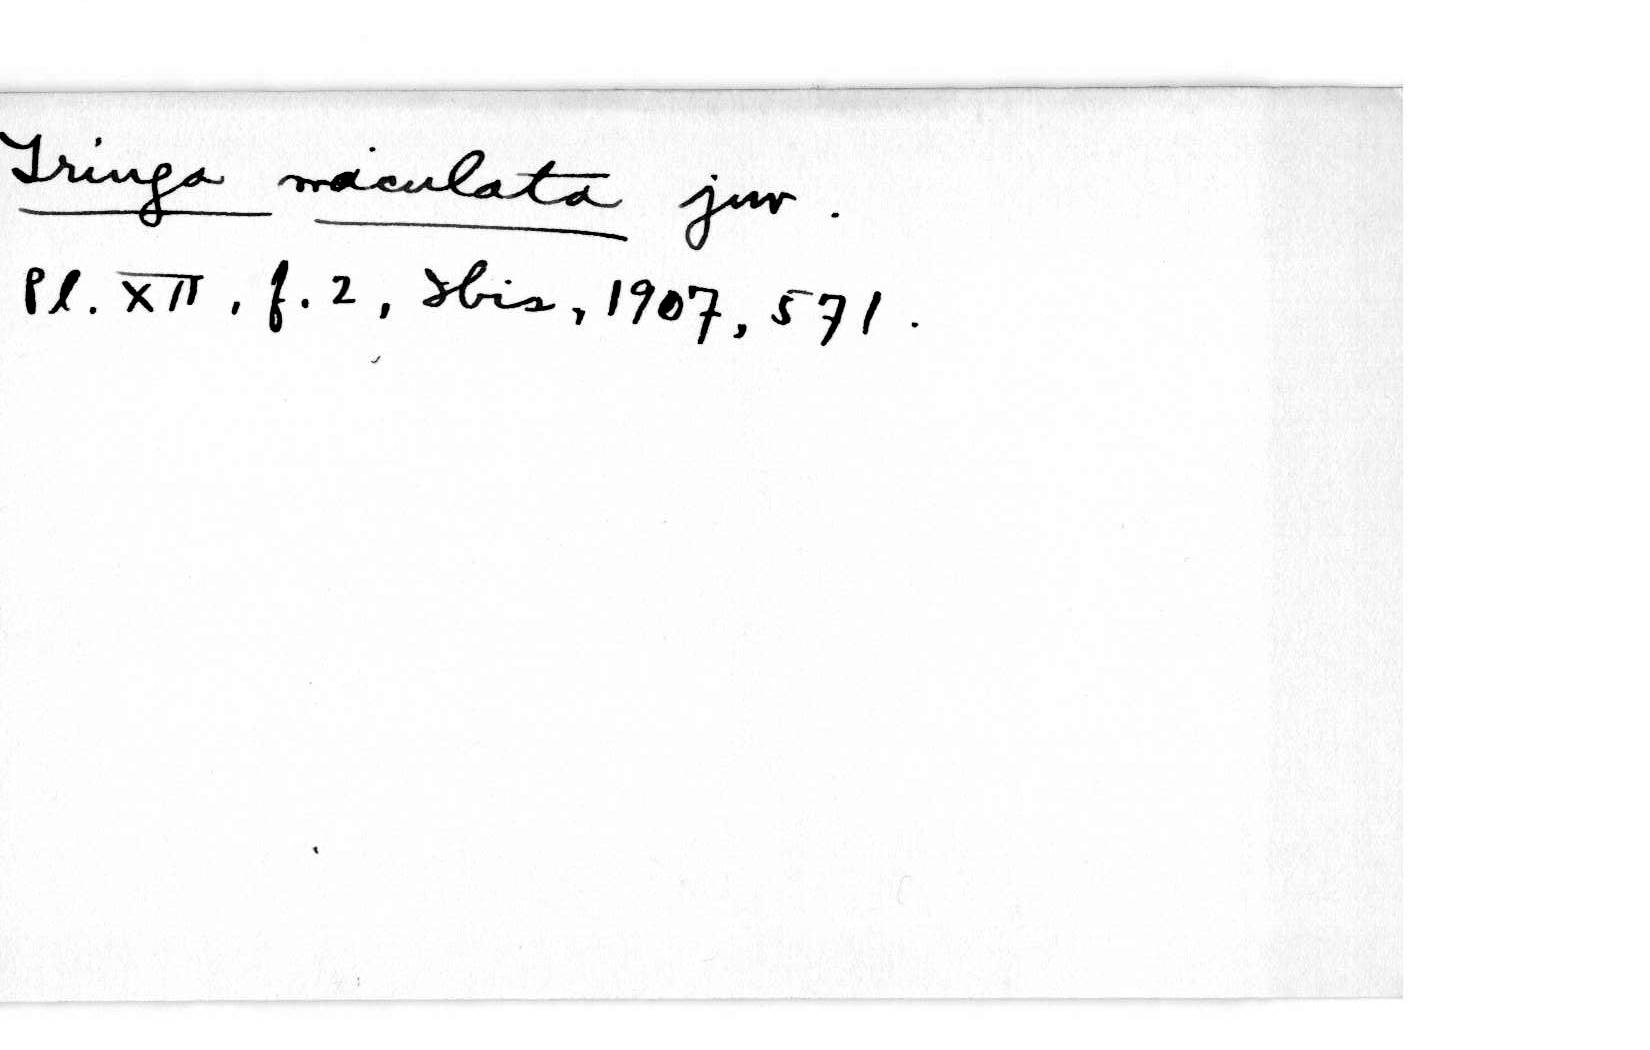 Tringa maculata juv.
Pl. XII, f. 2, Ibis, 1907, 571.